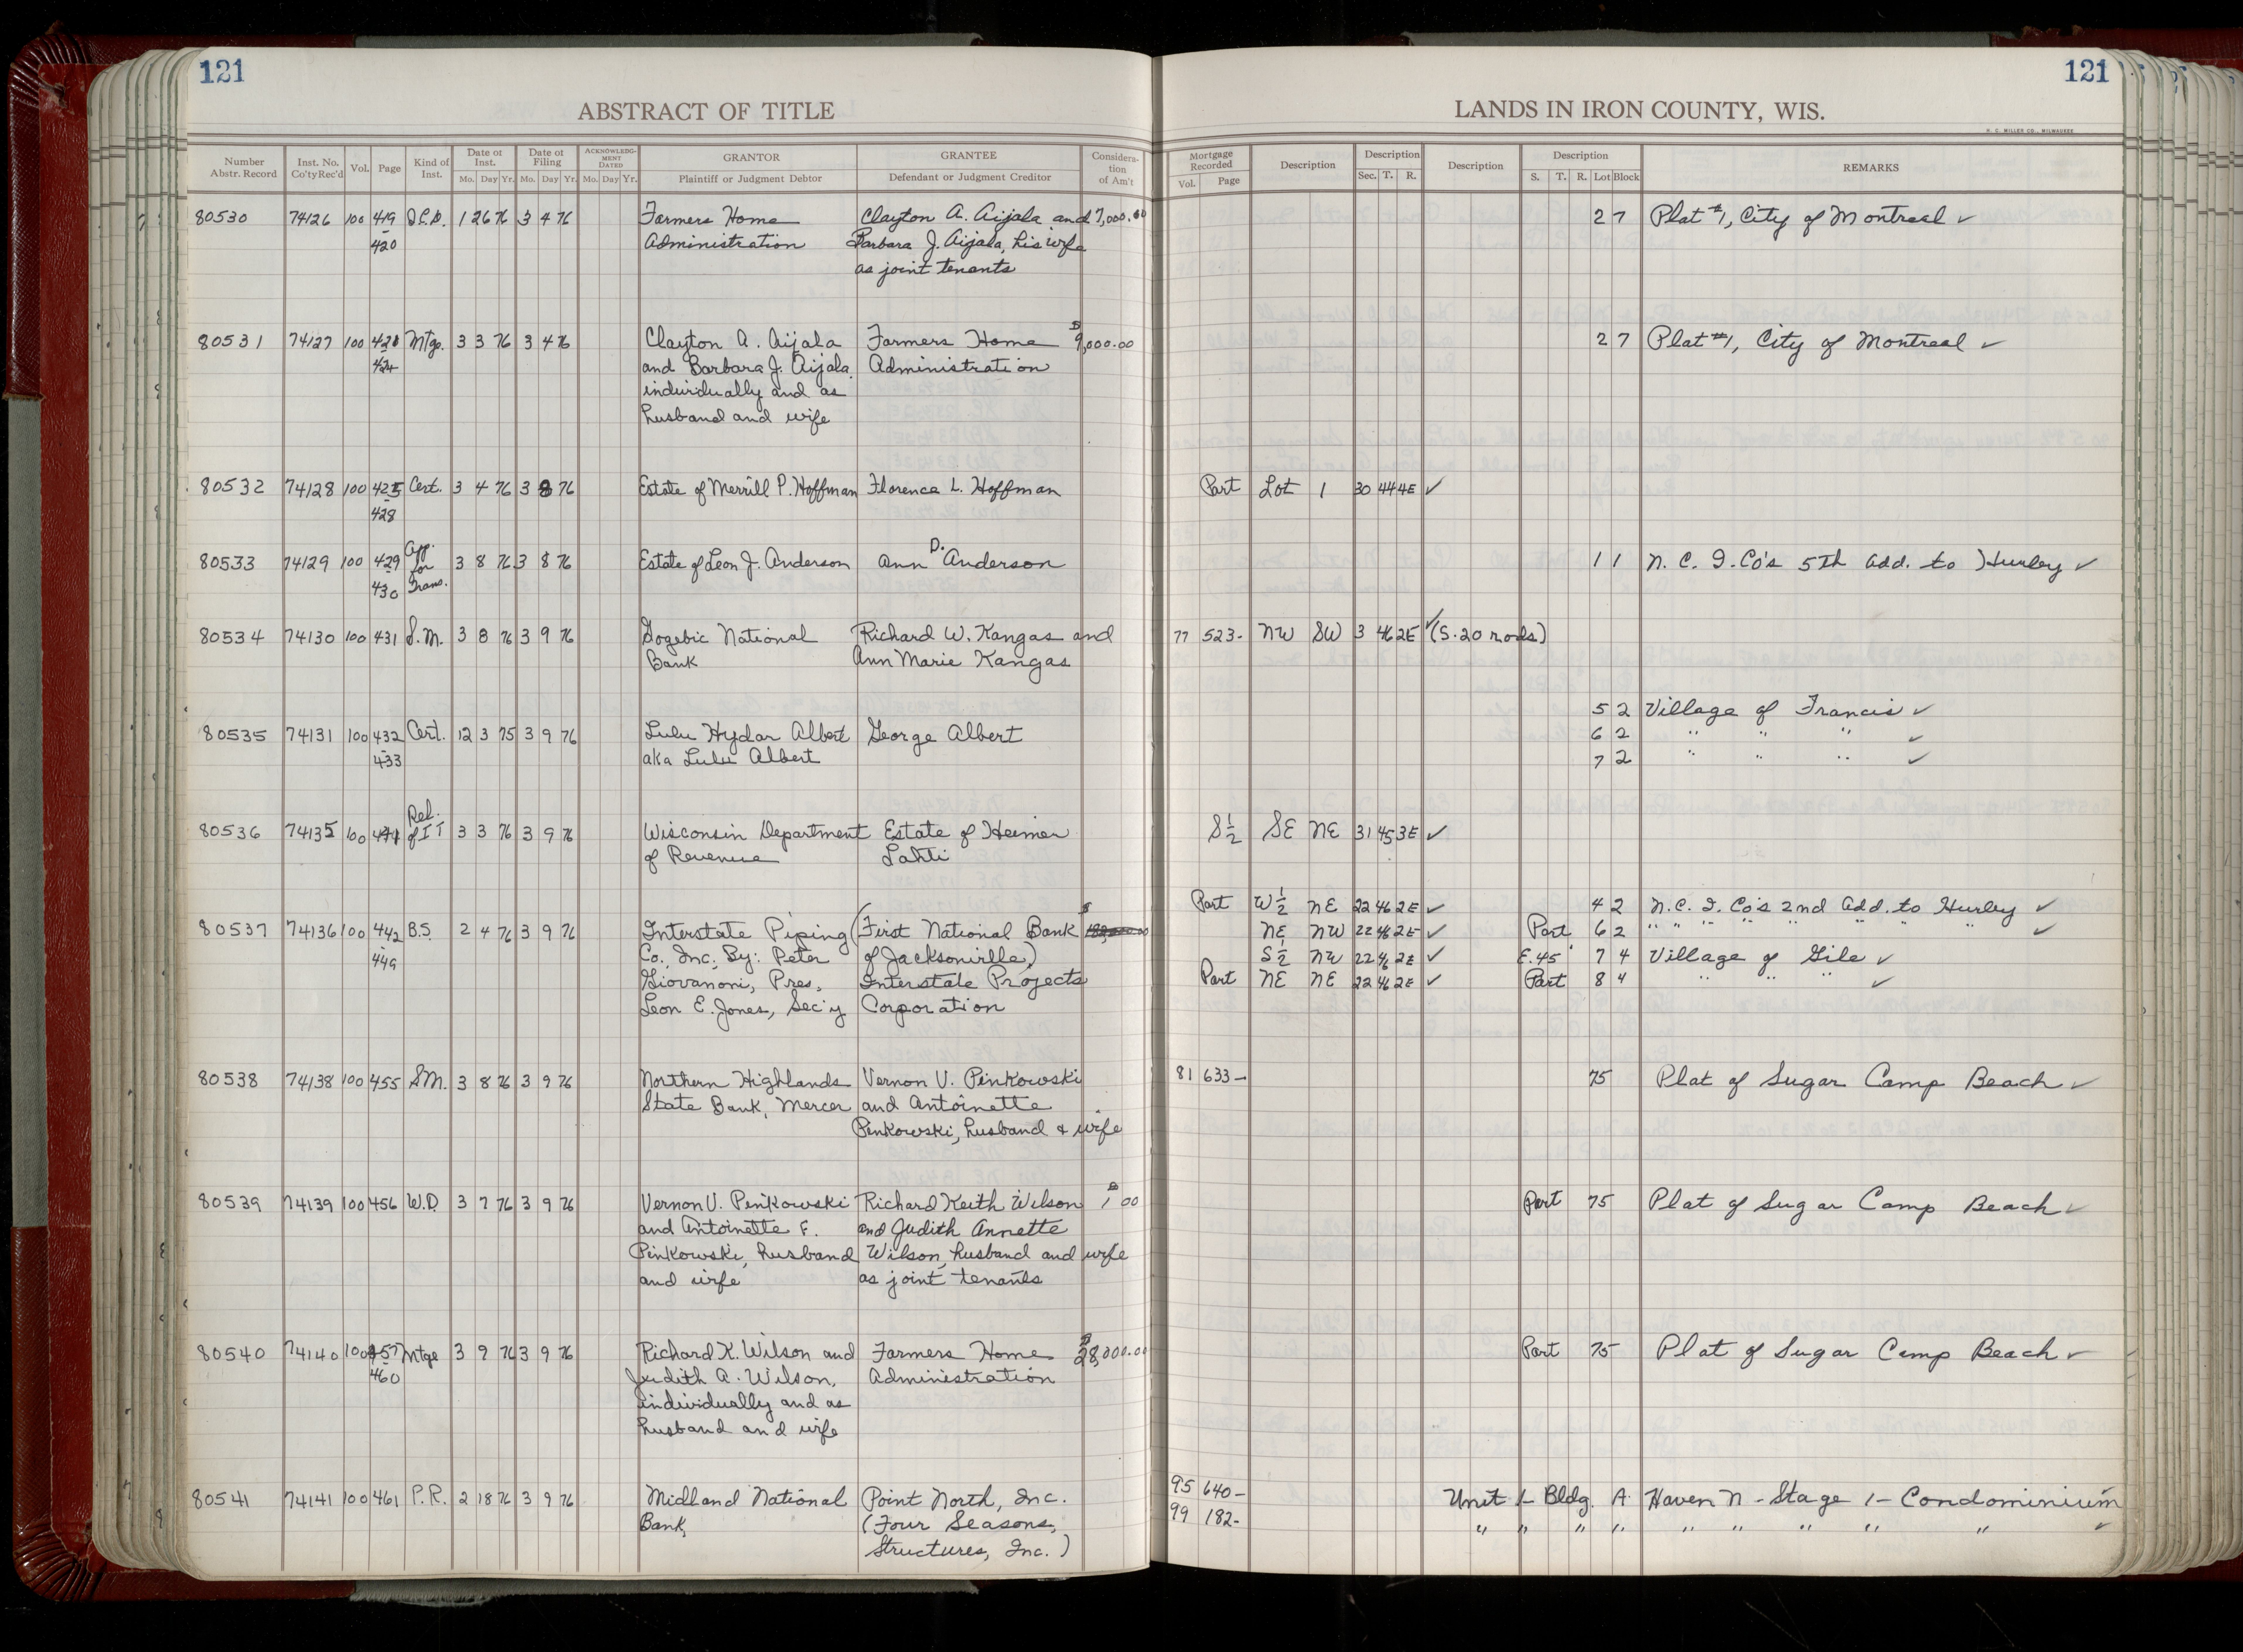 121
ABSTRACT OF TITLE
Number Abstr. Record | Inst. No. Co'ty Rec'd | Vol. | Page | Kind of Inst. | Date of Inst. Mo. Day Yr. | Date of Filing Mo. Day Yr. | ACKNOWLEDGMENT DATED Mo. Day Yr. | GRANTOR Plaintiff or Judgment Debtor | GRANTEE Defendant or Judgment Creditor | Consideration of Am't
121
LANDS IN IRON COUNTY, WIS.
H. C. MILLER CO., MILWAUKEE
Mortgage Recorded Vol. Page | Description | Description Sec. T. R. | Description | Description S. T. R. Lot Block | REMARKS
80530 74126 100 419 1 26 76 3 4 76 Farmers Home Clayton A. Aijala and 7,000.00 2 7 Plat #1, City of Montreal ✓
- 420 Administration Barbara J. Aijala, his wife
as joint tenants
80531 74127 100 421 Mtge. 3 3 76 3 4 76 Clayton A. Aijala Farmers Home $9,000.00 2 7 Plat #1, City of Montreal ✓
- 424 and Barbara J. Aijala, Administration
individually and as
husband and wife
80532 74128 100 425 Cert. 3 4 76 3 8 76 Estate of Merrill P. Hoffman Florence L. Hoffman Part Lot 1 30 44 4E ✓
- 428
80533 74129 100 429 App. for Trans. 3 8 76 3 8 76 Estate of Leon J. Anderson Ann D. Anderson 1 1 N. C. I. Co's 5th Add. to Hurley ✓
- 430
80534 74130 100 431 S.M. 3 8 76 3 9 76 Gogebic National Richard W. Kangas and 77 523- NW SW 3 46 2E ✓ (S. 20 rods)
Bank Ann Marie Kangas
5 2 Village of Francis ✓
80535 74131 100 432 Cert. 12 3 75 3 9 76 Lulu Hydar Albert George Albert 6 2 " " " ✓
- 433 aka Lulu Albert 7 2 " " " ✓
80536 74135 100 441 Rel. of I T 3 3 76 3 9 76 Wisconsin Department Estate of Heimer S½ SE NE 31 45 3E ✓
of Revenue Lahti
Part W½ NE 22 46 2E ✓ 4 2 N. C. I. Co's 2nd Add. to Hurley ✓
80537 74136 100 442 B.S. 2 4 76 3 9 76 Interstate Piping (First National Bank $ NE NW 22 46 2E ✓ Part 6 2 " " " " " " " ✓
- 449 Co., Inc. By: Peter of Jacksonville) S½ NW 22 46 2E ✓ E. 45' 7 4 Village of Gile ✓
Giovanoni, Pres., Interstate Projects Part NE NE 22 46 2E ✓ Part 8 4 " " " ✓
Leon E. Jones, Sec'y Corporation
80538 74138 100 455 S.M. 3 8 76 3 9 76 Northern Highlands Vernon V. Pinkowski 81 633- 75 Plat of Sugar Camp Beach ✓
State Bank, Mercer and Antoinette
Penkowski, husband & wife
80539 74139 100 456 W.D. 3 7 76 3 9 76 Vernon V. Pinkowski Richard Keith Wilson $1 00 Part 75 Plat of Sugar Camp Beach ✓
and Antoinette F. and Judith Annette
Pinkowski, husband Wilson, husband and wife
and wife as joint tenants
80540 74140 100 457 Mtge 3 9 76 3 9 76 Richard K. Wilson and Farmers Home $28,000.00 Part 75 Plat of Sugar Camp Beach ✓
- 460 Judith A. Wilson, Administration
individually and as
husband and wife
80541 74141 100 461 P.R. 2 18 76 3 9 76 Midland National Point North, Inc. 95 640- Unit 1- Bldg. A Haven N - Stage 1 - Condominium
Bank, (Four Seasons, 99 182- " " " " " " " " " ✓
Structures, Inc.)